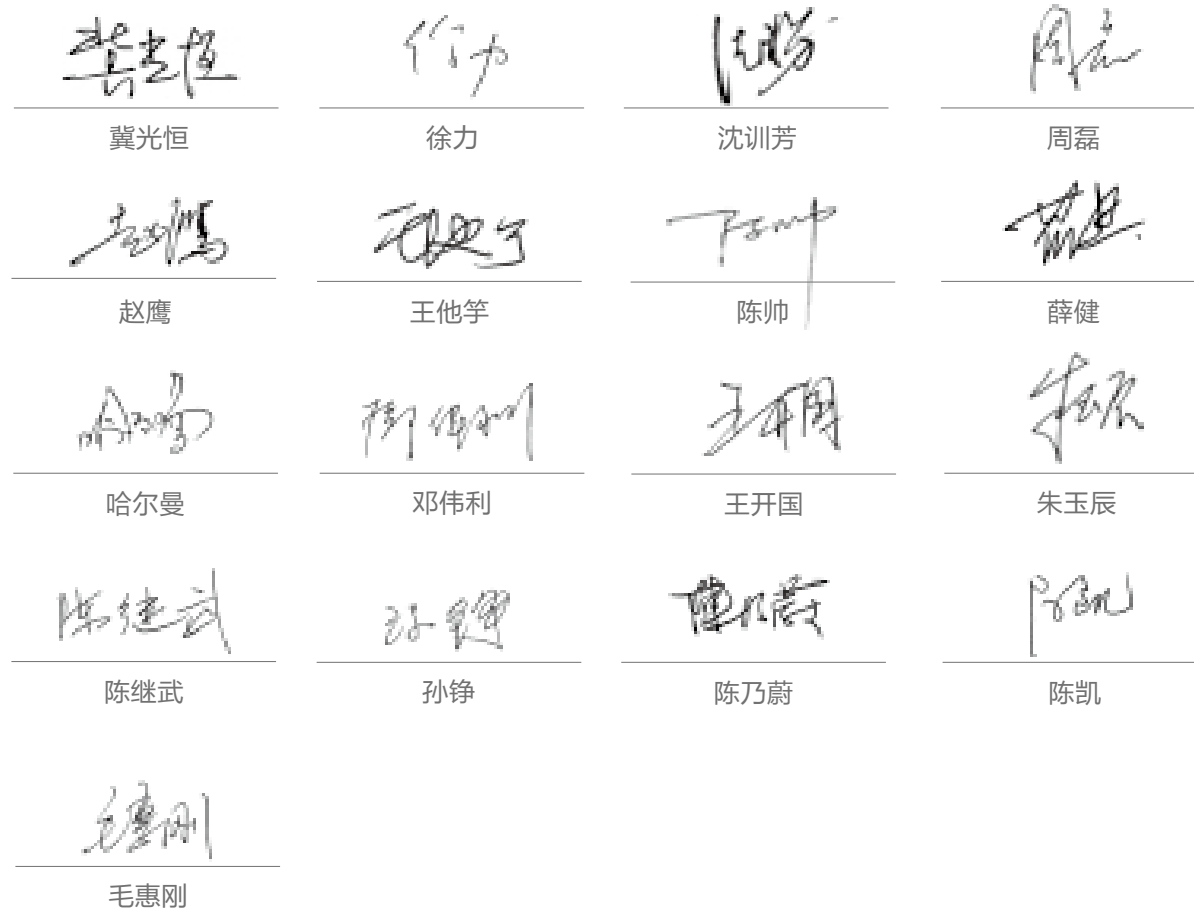 冀光恒 徐力 沈训芳 周磊
赵鹰 王他竽 陈帅 薛健
哈尔曼 邓伟利 王开国 朱玉辰
陈继武 孙铮 陈乃蔚 陈凯
毛惠刚